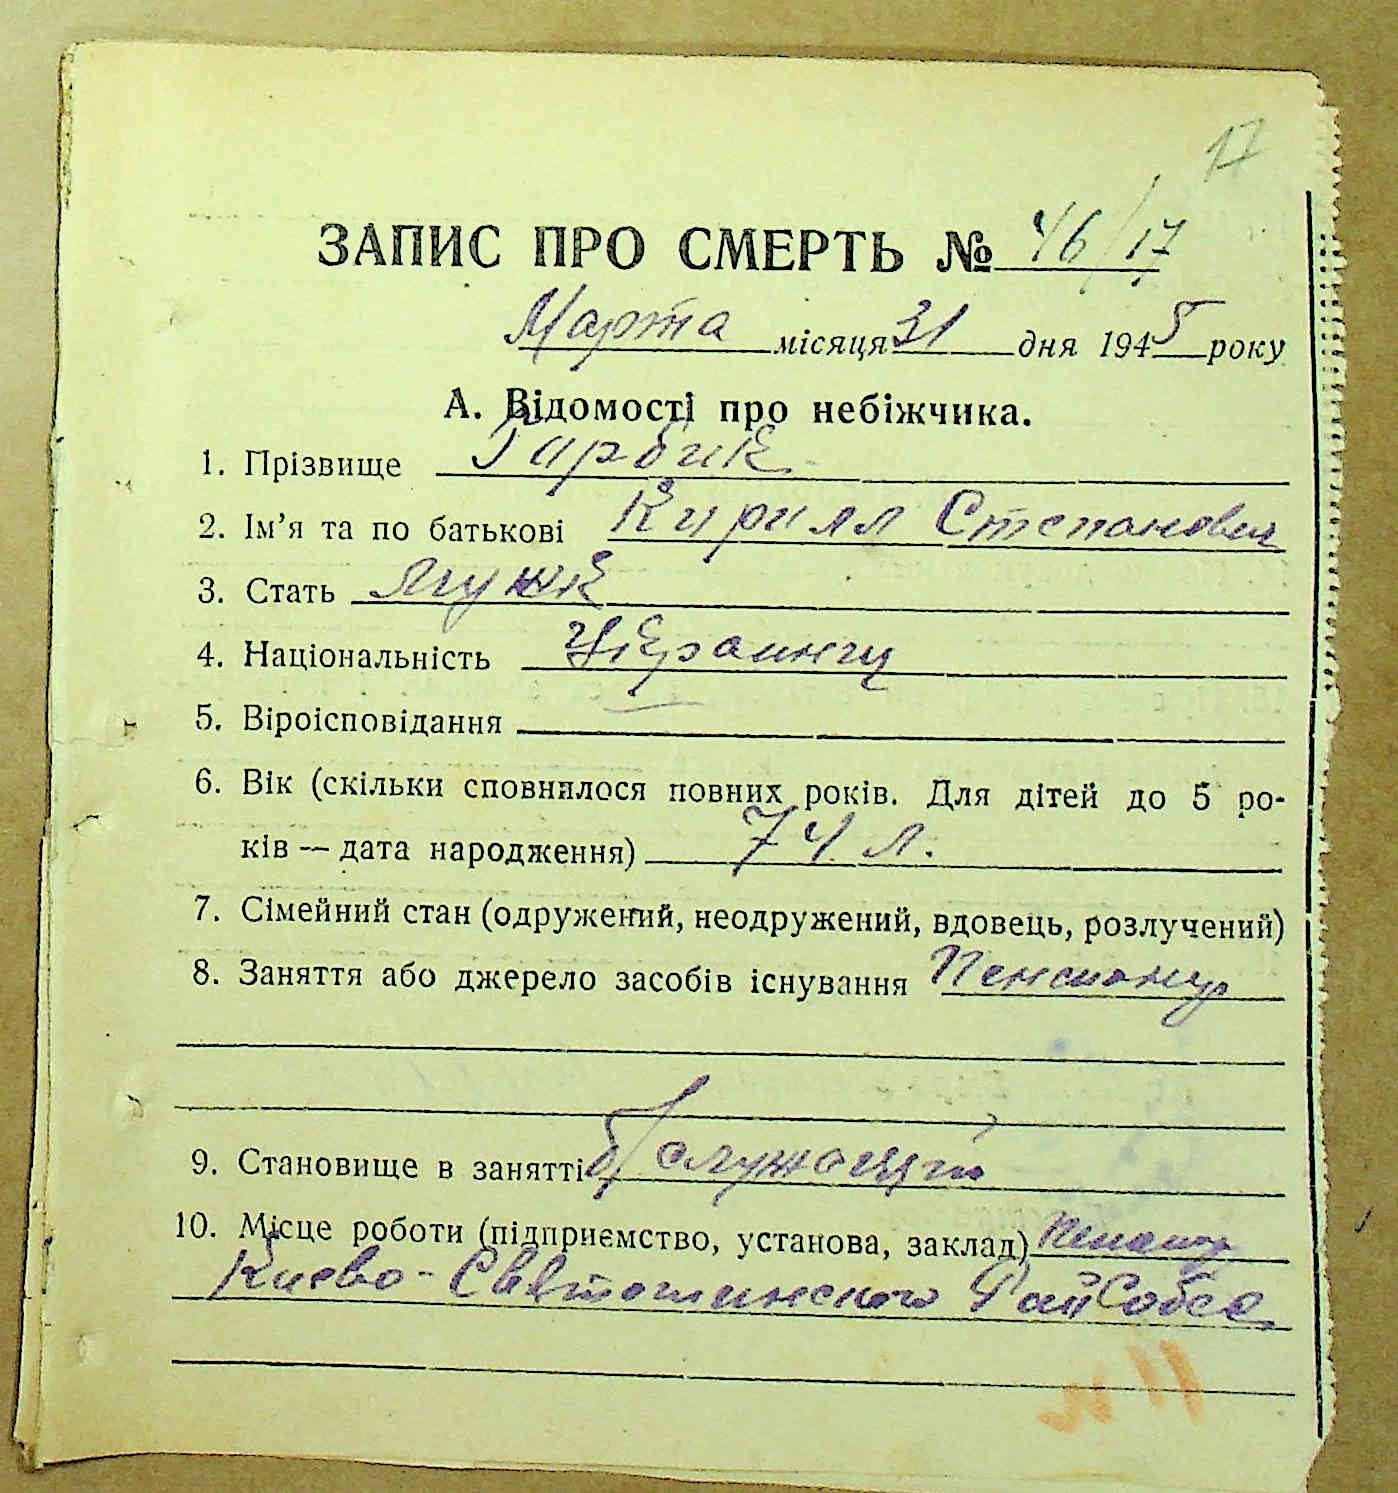 17
ЗАПИС ПРО СМЕРТЬ № 46/17
Марта місяця 31 дня 1945 року
А. Відомості про небіжчика.
1. Прізвище Гарбик
2. Ім’я та по батькові Кирилл Степанович
3. Стать Мужск
4. Національність Украинец
5. Віроісповідання
6. Вік (скільки сповнилося повних років. Для дітей до 5 ро-
ків — дата народження) 74 л.
7. Сімейний стан (одружений, неодружений, вдовець, розлучений)
8. Заняття або джерело засобів існування Пенсионер
9. Становище в занятті б/служащий
10. Місце роботи (підприємство, установа, заклад)
Киево-Святошинского РайСобеса